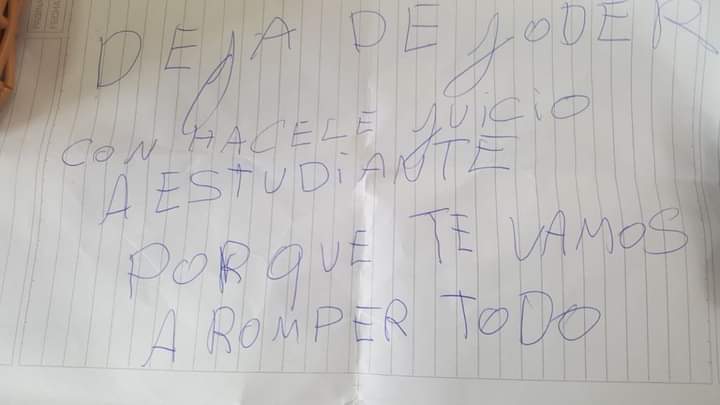 DEJA DE JODER
CON HACELE JUICIO
A ESTUDIANTE
PORQUE TE VAMOS
A ROMPER TODO